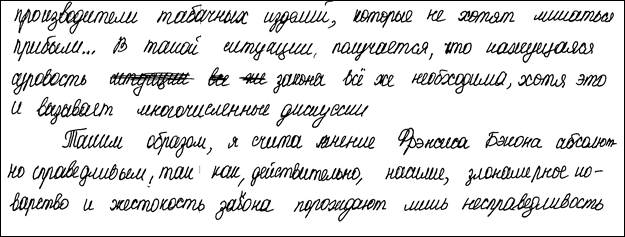 производители табачных изделий, которые не хотят лишаться
прибыли... В такой ситуации, получается, что кажущаяся
суровость ситуации все же закона всё же необходима, хотя это
и вызывает многочисленные дискуссии
Таким образом, я счита мнение Фрэнсиса Бэкона абсолют
но справедливым, так как, действительно, насилие, злонамерное ко-
варство и жестокость закона порождают лишь несправедливость